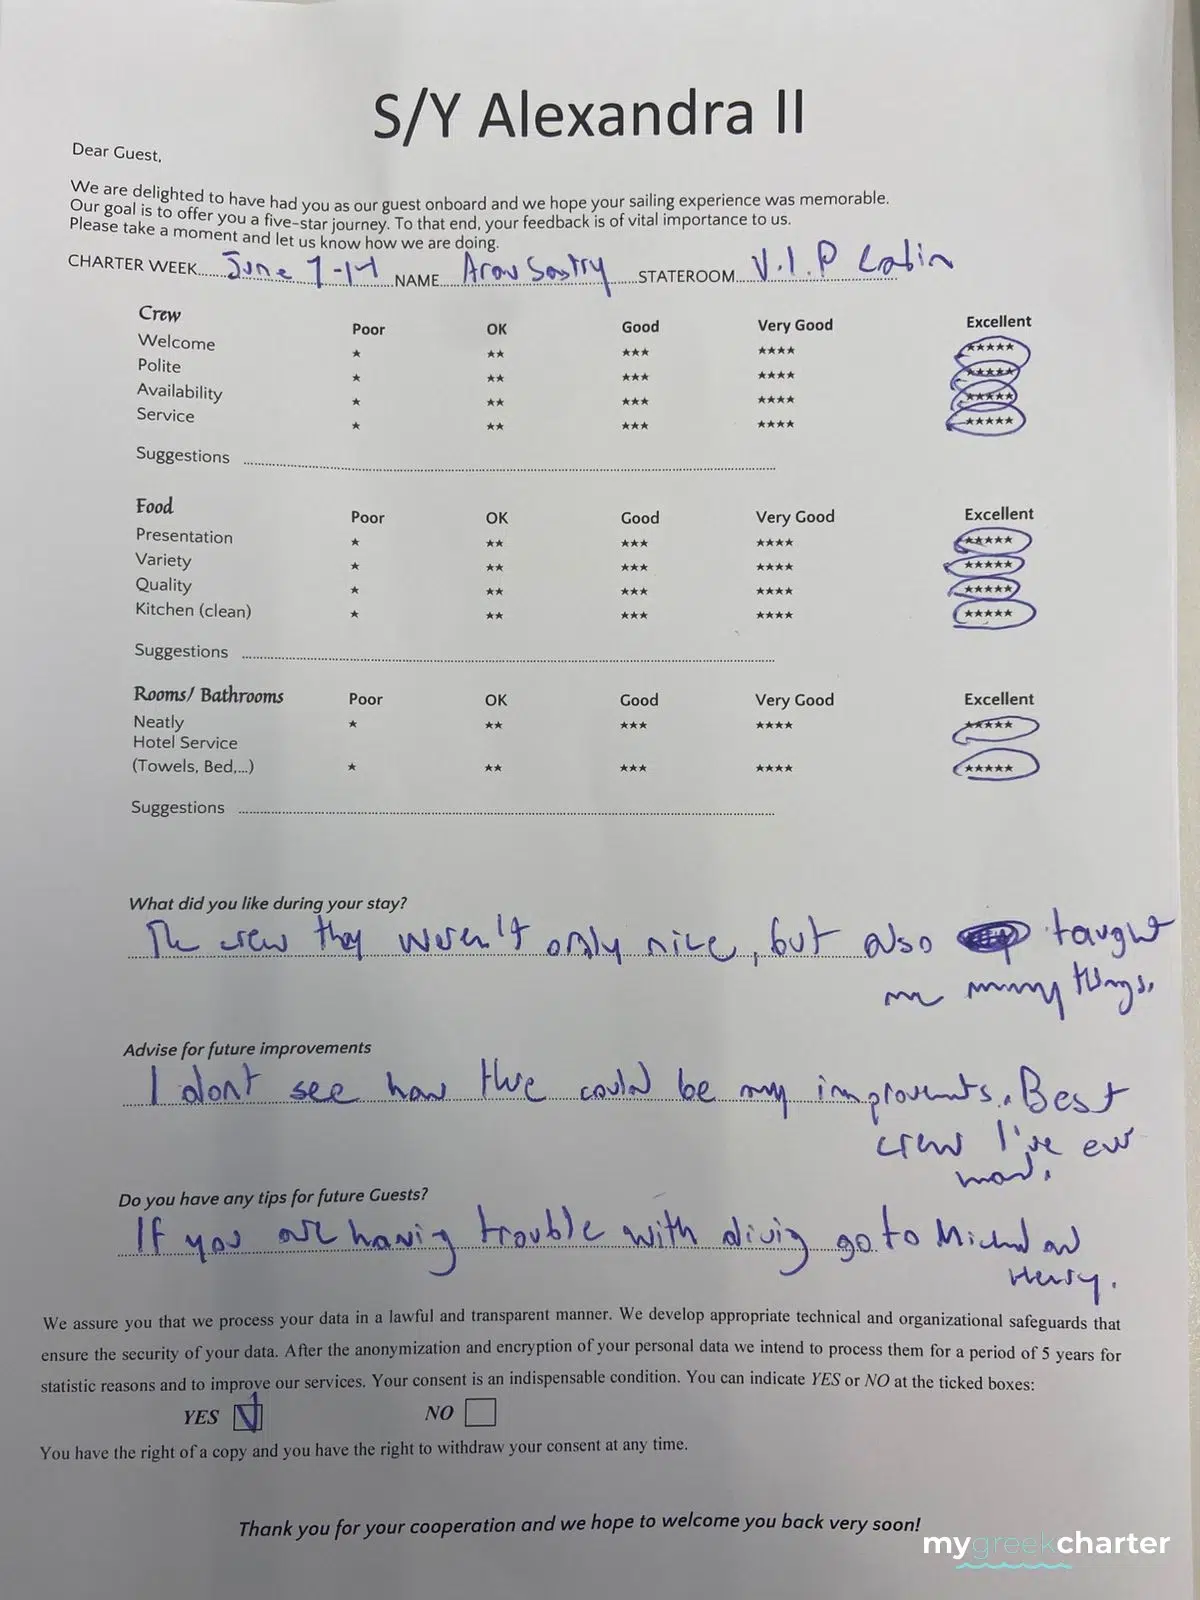 S/Y Alexandra II
Dear Guest,
We are delighted to have had you as our guest onboard and we hope your sailing experience was memorable.
Our goal is to offer you a five-star journey. To that end, your feedback is of vital importance to us.
Please take a moment and let us know how we are doing.
CHARTER WEEK......June 7-14......NAME....Arav Sastry......STATEROOM....V.I.P Cabin
Crew Poor OK Good Very Good Excellent
Welcome ★ ★★ ★★★ ★★★★ ★★★★★
Polite ★ ★★ ★★★ ★★★★ ★★★★★
Availability ★ ★★ ★★★ ★★★★ ★★★★★
Service ★ ★★ ★★★ ★★★★ ★★★★★
Suggestions
Food Poor OK Good Very Good Excellent
Presentation ★ ★★ ★★★ ★★★★ ★★★★★
Variety ★ ★★ ★★★ ★★★★ ★★★★★
Quality ★ ★★ ★★★ ★★★★ ★★★★★
Kitchen (clean) ★ ★★ ★★★ ★★★★ ★★★★★
Suggestions
Rooms/ Bathrooms Poor OK Good Very Good Excellent
Neatly ★ ★★ ★★★ ★★★★ ★★★★★
Hotel Service
(Towels, Bed,...) ★ ★★ ★★★ ★★★★ ★★★★★
Suggestions
What did you like during your stay?
The crew they weren't only nice, but also taught
me many things.
Advise for future improvements
I dont see how there could be any improvements. Best
crew I've ever
Do you have any tips for future Guests?
If you are having trouble with diving go to Michael and
Henry.
We assure you that we process your data in a lawful and transparent manner. We develop appropriate technical and organizational safeguards that
ensure the security of your data. After the anonymization and encryption of your personal data we intend to process them for a period of 5 years for
statistic reasons and to improve our services. Your consent is an indispensable condition. You can indicate YES or NO at the ticked boxes:
YES NO
You have the right of a copy and you have the right to withdraw your consent at any time.
Thank you for your cooperation and we hope to welcome you back very soon!
mygreekcharter